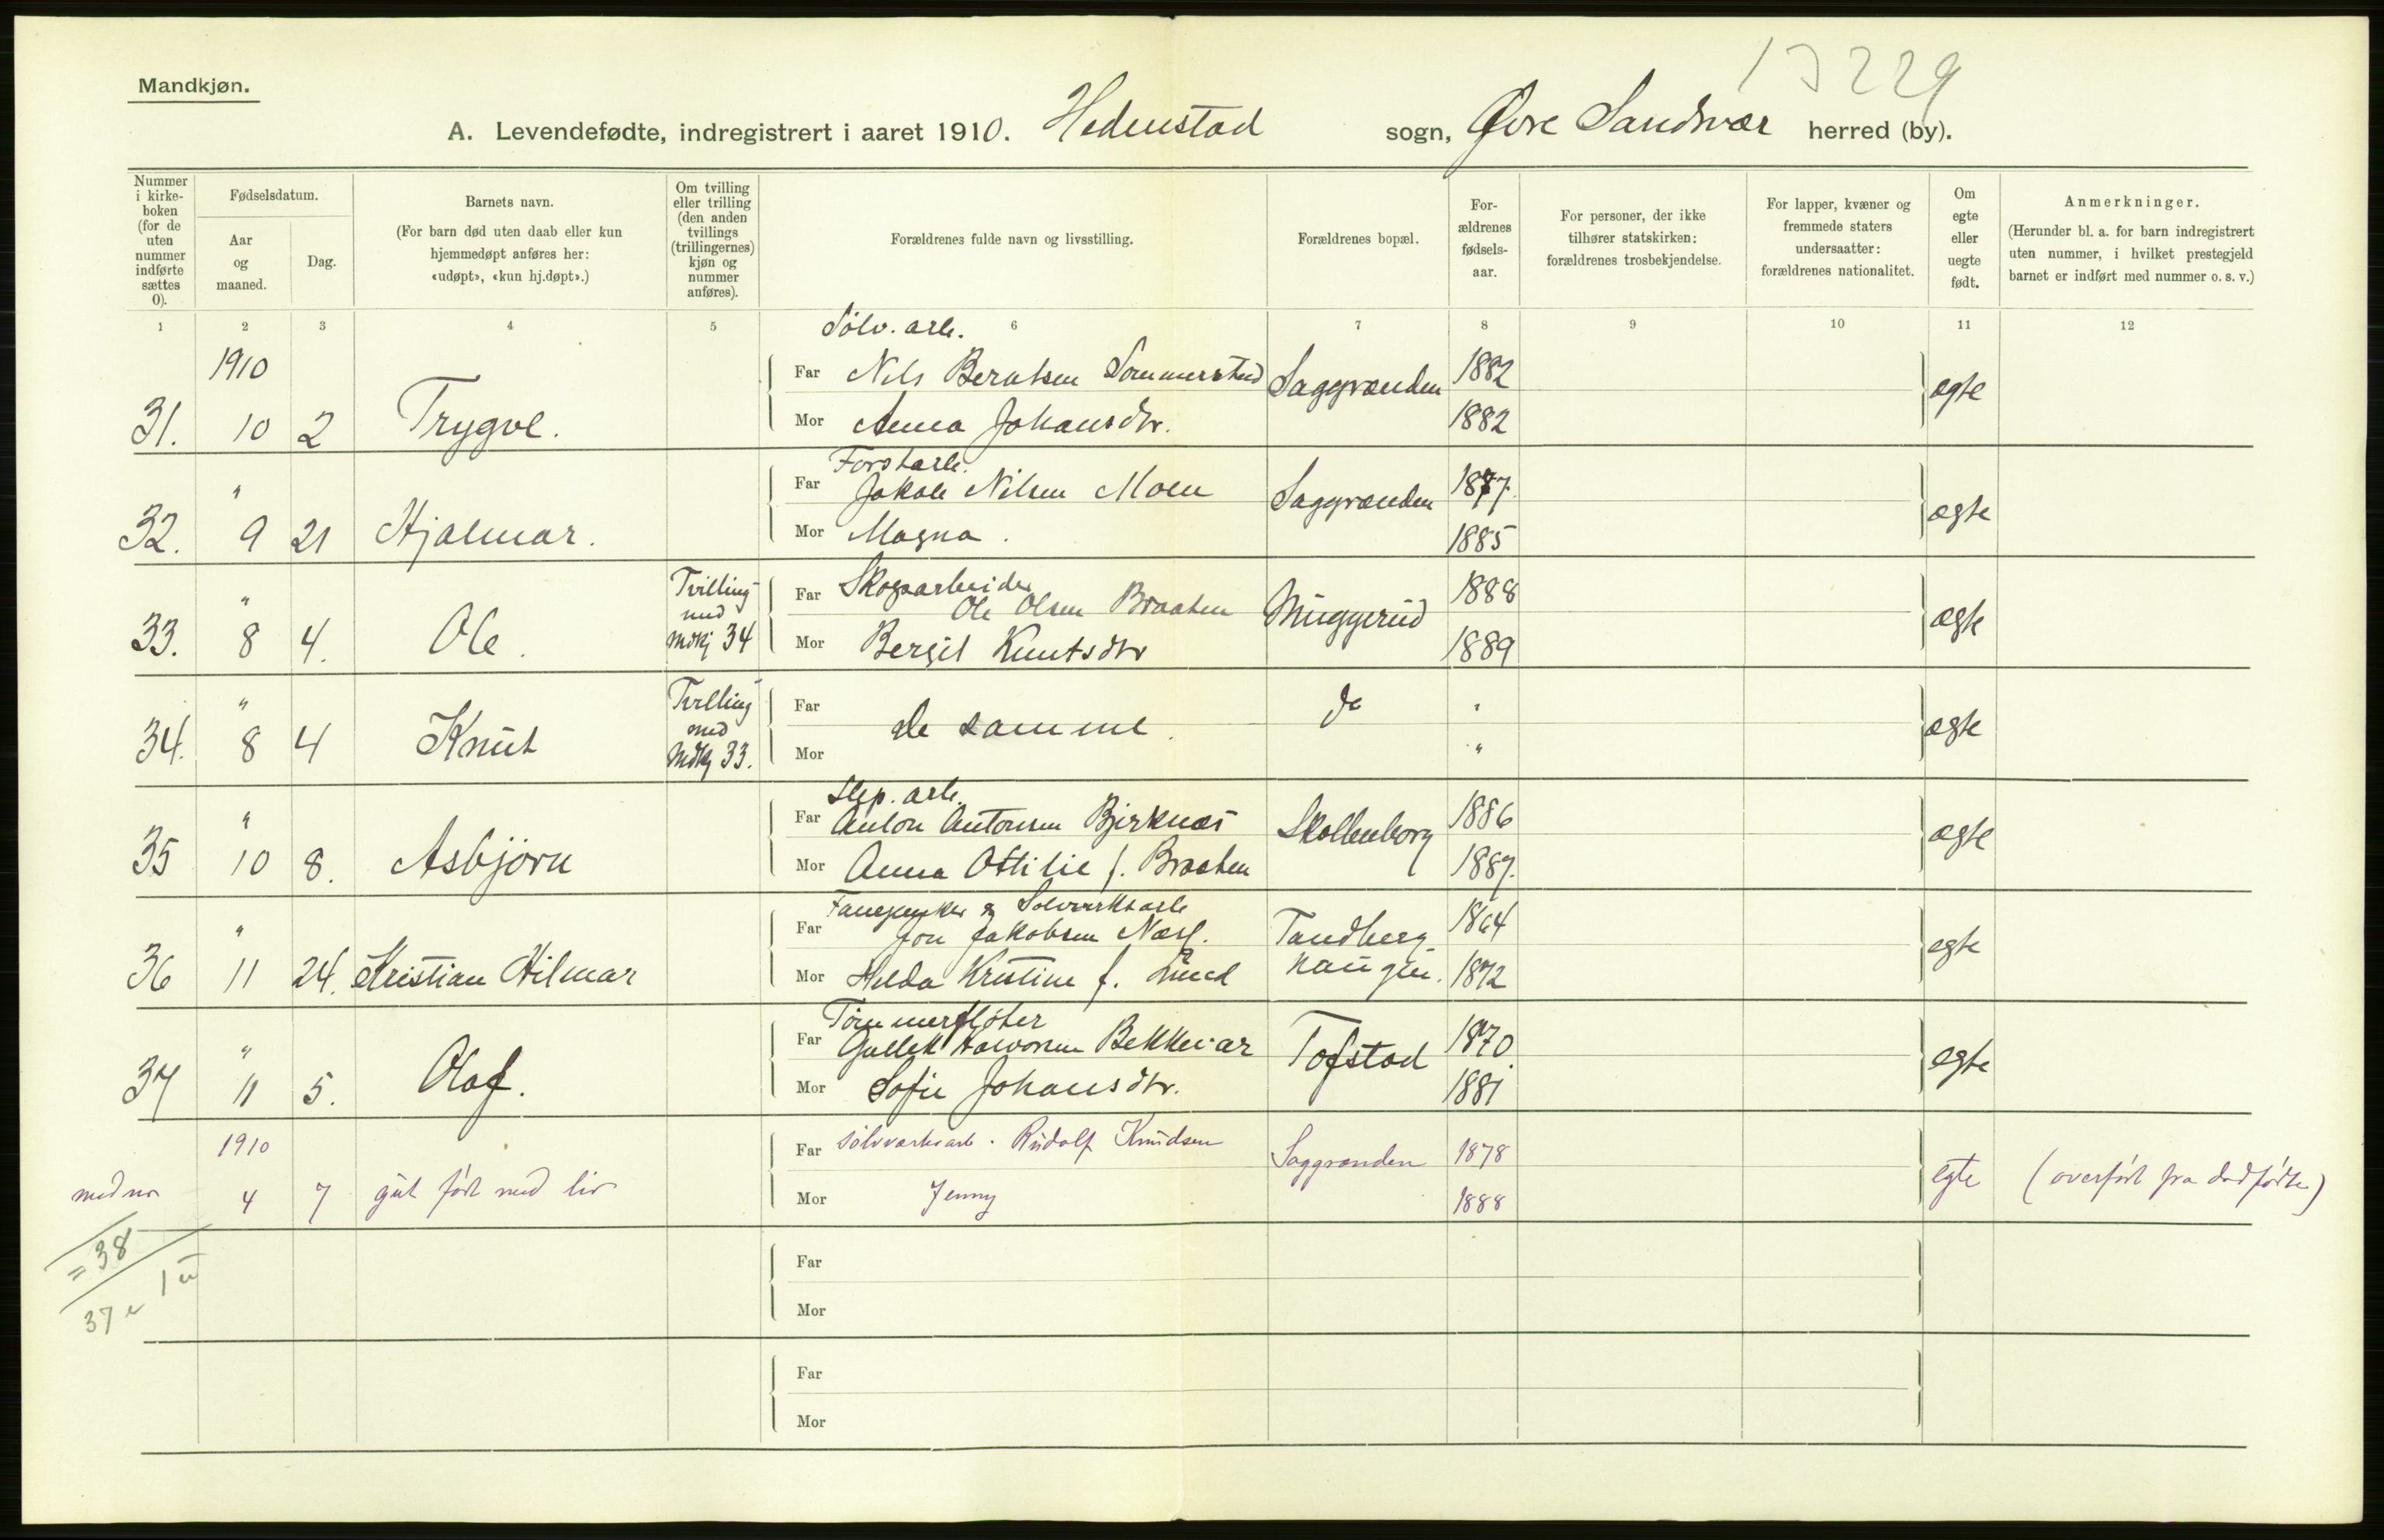 13229
Mandkjøn.
A. Levendefødte, indregistrert i aaret 1910. Hedenstad sogn, Øvre Sandsvær herred (by).
Nummer i kirkeboken (for de uten nummer indførte sættes 0).
Fødselsdatum.
Aar og maaned.
Dag.
Barnets navn.
(For barn død uten daab eller kun hjemmedøpt anføres her: «udøpt», «kun hj.døpt».)
Om tvilling eller trilling (den anden tvillings (trillingernes) kjøn og nummer anføres).
Forældrenes fulde navn og livsstilling.
Forældrenes bopæl.
Forældrenes fødselsaar.
For personer, der ikke tilhører statskirken: forældrenes trosbekjendelse.
For lapper, kvæner og fremmede staters undersaatter: forældrenes nationalitet.
Om egte eller uegte født.
Anmerkninger.
(Herunder bl. a. for barn indregistrert uten nummer, i hvilket prestegjeld barnet er indført med nummer o. s. v.)
1 2 3 4 5 6 7 8 9 10 11 12
Sølv. arb.
1910 Far Nils Berntsen Sommerstad Saggrenden 1882 egte
31. 10 2 Trygve. Mor Anna Johansdtr. 1882
Forstarb.
" Far Jakob Nilsen Moen Saggrenden 1877. ægte
32. 9 21 Hjalmar. Mor Magna. 1885
" Tvilling med Mdkj 34 Far Skogsarbeider Ole Olsen Braaten Muggerud 1888 ægte
33. 8 4. Ole. Mor Bergit Knutsdtr 1889
" Tvilling med Mdkj 33. Far de samme. do " ægte
34. 8 4 Knut Mor "
Slip. arb.
" Far Anton Antonsen Bjerknæs Skollenborg 1886 ægte
35 10 8. Asbjørn Mor Anna Ottilie f. Braaten 1887.
Sølvverksarb
" Far Jon Jakobsen Tandberg 1864 egte
36 11 24. Kristian Hilmar Mor Hilda Kristine f. Lund haugen. 1872
Tømmerfløter
" Far Gullek Halvorsen Bekkevar Tofstad 1870 egte
37 11 5. Olaf. Mor Sofie Johansdtr. 1881
1910 Far sølvverksarb. Rudolf Knudsen Saggrenden 1878 egte (overført fra dødfødte)
med no 4 7 gut født med liv Mor Jenny 1888
= 38
1 u
37 e
Far
Mor
Far
Mor